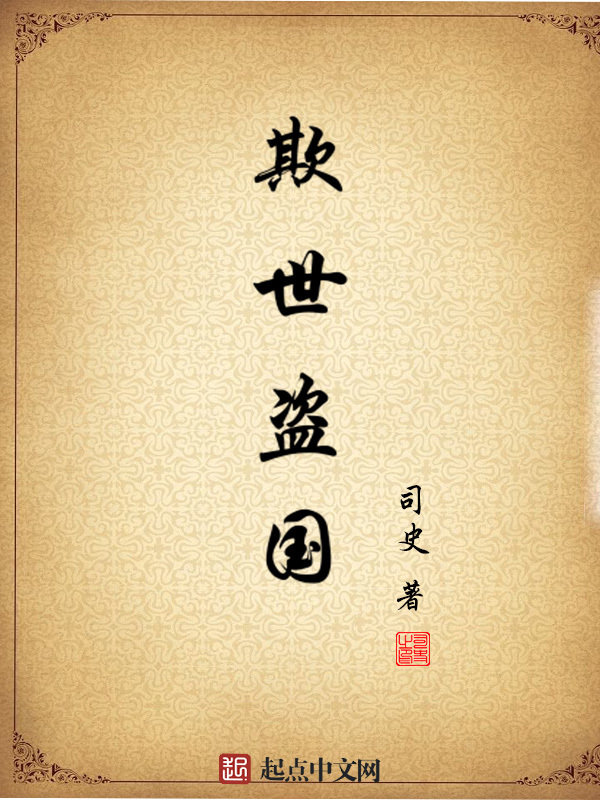 欺世盗国
司史 著
起点中文网